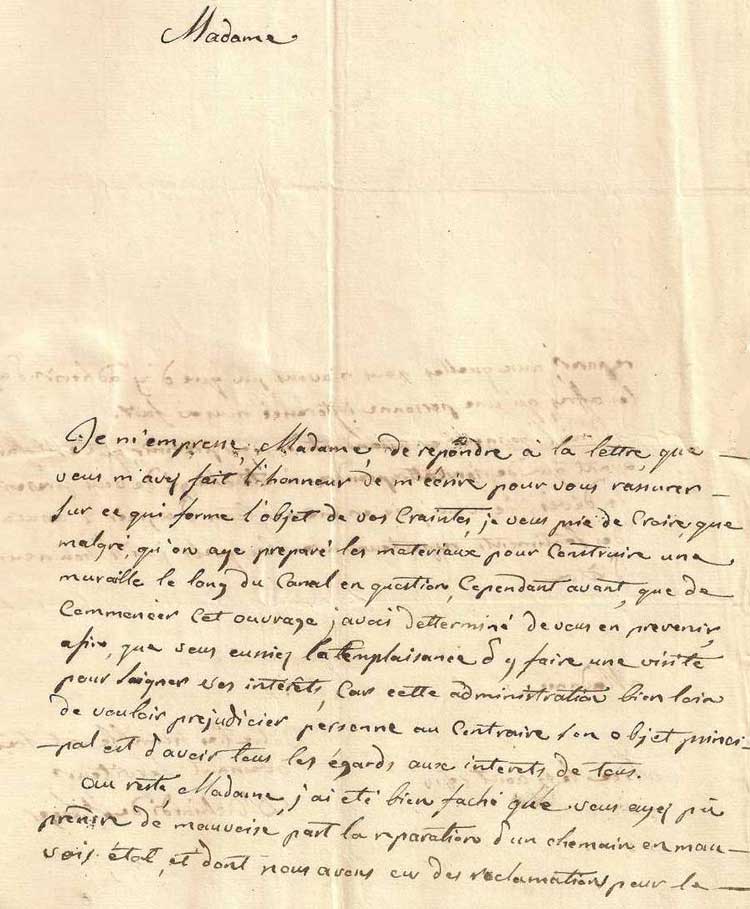 Madame
Je m'empresse, Madame, de repondre à la lettre, que
vous m'avez fait l'honneur de m'écrire pour vous rassurer
sur ce qui forme l'objet de vos Craintes, je vous prie de Croire, que
malgré, qu'on aye preparé les materiaux pour Construire une
muraille le long du Canal en question, Cependant avant, que de
Commencer Cet ouvrage j'avois determiné de vous en prevenir,
afin, que vous eussiez la Complaisance d'y faire une visite
pour soigner vos interêts, Car cette administration bien loin
de vouloir prejudicier personne au Contraire son objet princi-
-pal est d'avoir tous les égards aux interets de tous.
Au reste, Madame, j'ai eté bien faché que vous ayez pû
prendre de mauvaise part la reparation d'un chemain en mau-
vois état, et dont nous avons eu des reclamations pour le